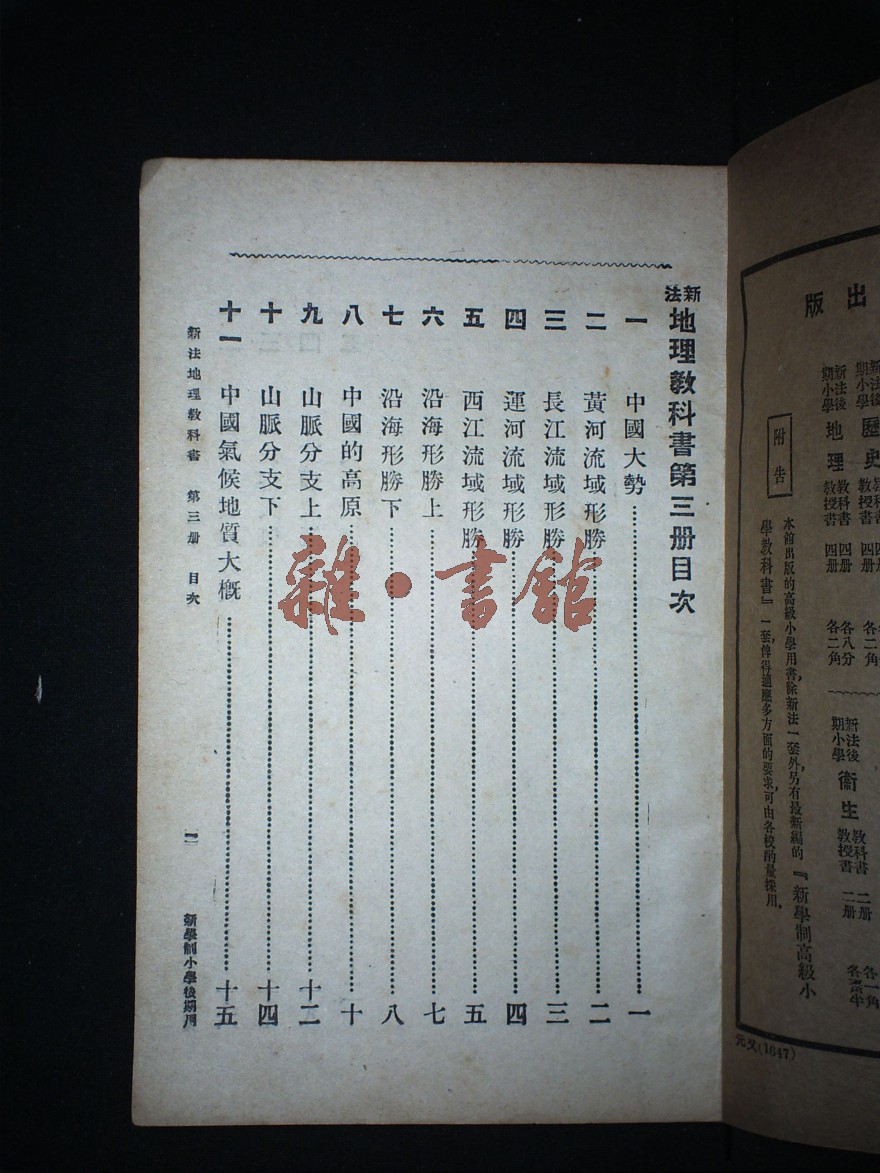 出版
新法後期小學 歷史 教科書 四册 各二角
教授書 四册
新法後期小學 地理 教科書 四册 各八分
教授書 四册 各二角
新法後期小學 衞生 教科書 二册 各一角
教授書 二册
附告
本館出版的高級小學用書，除新法一套外，另有最新編的『新學制高級小
學教科書』一套，俾得適應多方面的要求，可由各校酌量採用。
(1647)
新法地理教科書第三册目次
一 中國大勢……一
二 黃河流域形勝……二
三 長江流域形勝……三
四 運河流域形勝……四
五 西江流域形勝……五
六 沿海形勝上……七
七 沿海形勝下……八
八 中國的高原……十
九 山脈分支上……十二
十 山脈分支下……十四
十一 中國氣候地質大概……十五
新法地理教科書 第三册 目次
一
新學制小學後期用
雜·書館